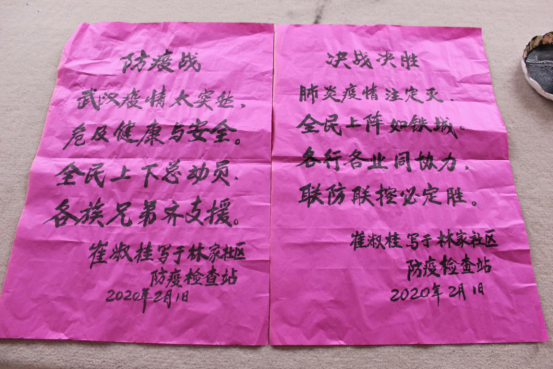 防疫战
武汉疫情太突然，
危及健康与安全。
全民上下总动员．
各族兄弟齐支援。
崔淑桂写于林家社区
防疫检查站
2020年2月1日
决战决胜
肺炎疫情注定灭．
全民上阵如铁城。
各行各业同协力，
联防联控必定胜。
崔淑桂写于林家社区
防疫检查站
2020年2月1日